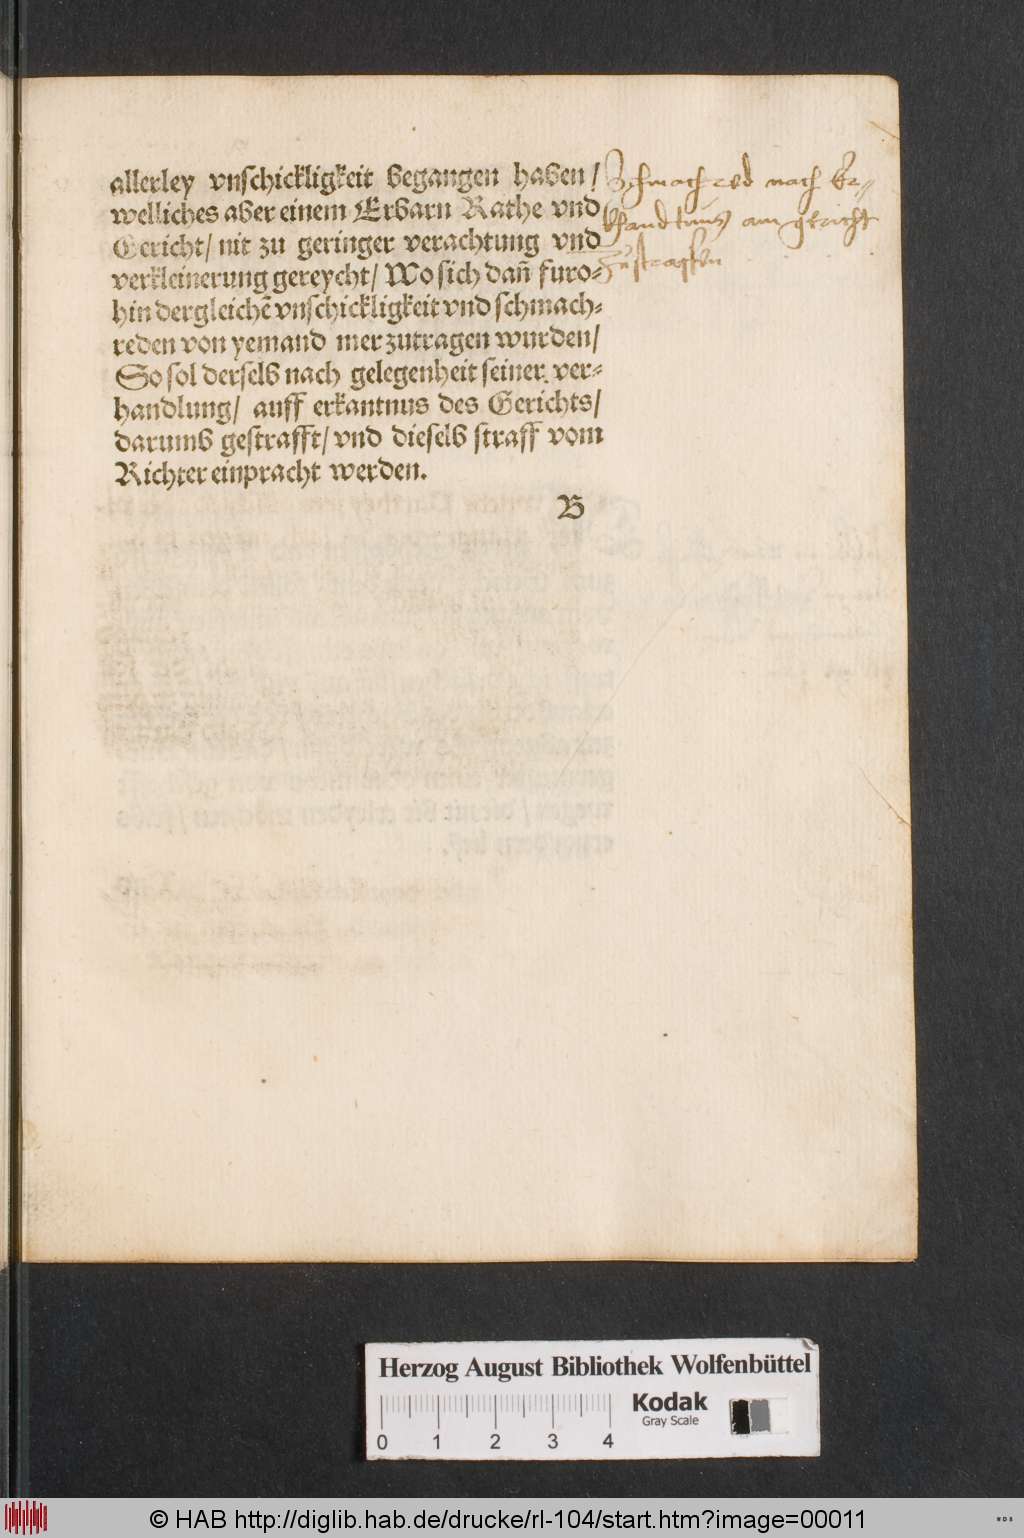 allerley vnschickligkeit begangen haben /
welliches aber einem Erbarn Rathe vnd
Gericht / nit zu geringer verachtung vnd
verkleinerung gereycht / Wo sich dañ furo-
hin dergleichẽ vnschickligkeit vnd schmach-
reden von yemand mer zutragen wurden /
So sol derselb nach gelegenheit seiner ver-
handlung / auff erkantnus des Gerichts /
darumb gestrafft / vnd dieselb straff vom
Richter einpracht werden.
B
Schmachred nach
am gericht
Herzog August Bibliothek Wolfenbüttel
Kodak
Gray Scale
0 1 2 3 4
© HAB http://diglib.hab.de/drucke/rl-104/start.htm?image=00011